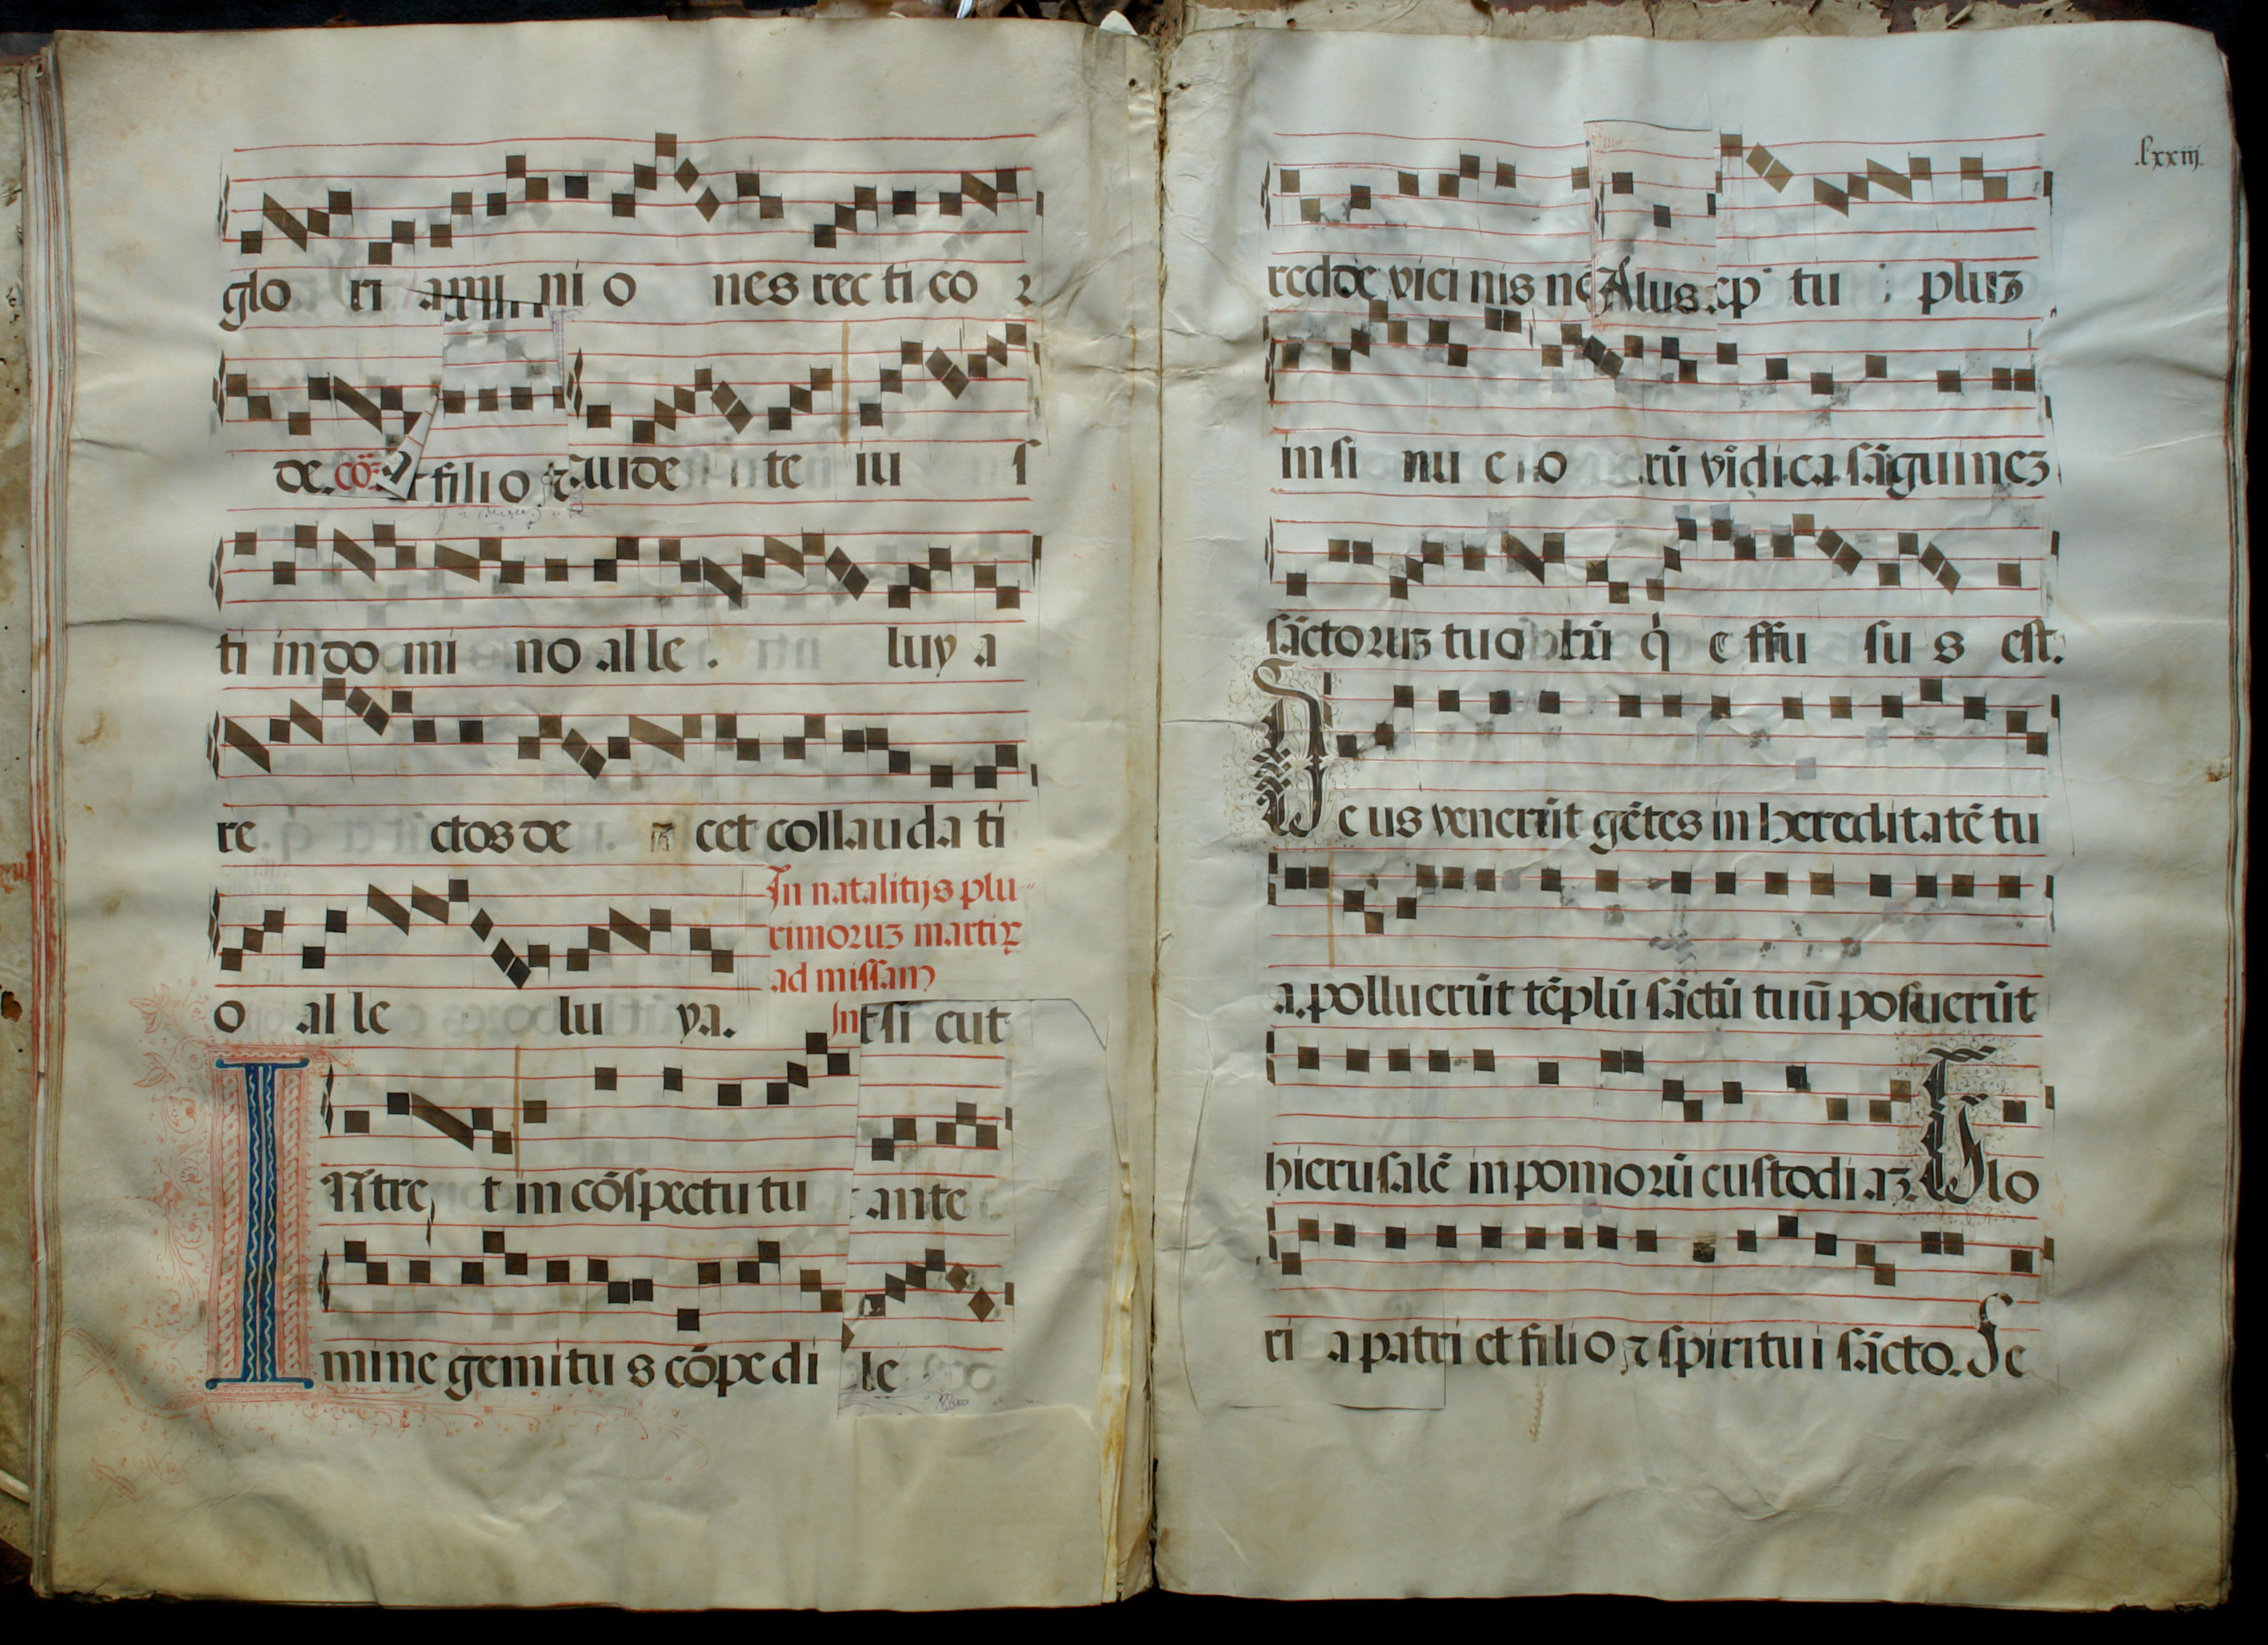 glo ri ami ni o nes rec ti co ꝛ
de. cō filio ⁊ aude i te iu ſ
ti in do mi no al le . luy a
re ctos de cet collauda ti
In natalitijs plu
rimoruʒ martiꝝ
ad missam
o al le lu ya. Int si cut
INtre t in cōſpectu tu ante
mine gemitu s cōpedi le
.lxxiij.
redde vici nis Alus. ep tu pluʒ
in ſi nu e o rū vīdica ſāguineʒ
ſāctoꝛuʒ tuo ꝛū q̇ e ffu ſu s eſt.
De us venerūt gētes in hereditatē tu
a. polluerūt tēplū ſāctū tuū poſuerūt
hieruſalē in pomoꝛū cuſtodi aʒ. Glo
ri a patri et filio ⁊ ſpiritu i ſācto. Se